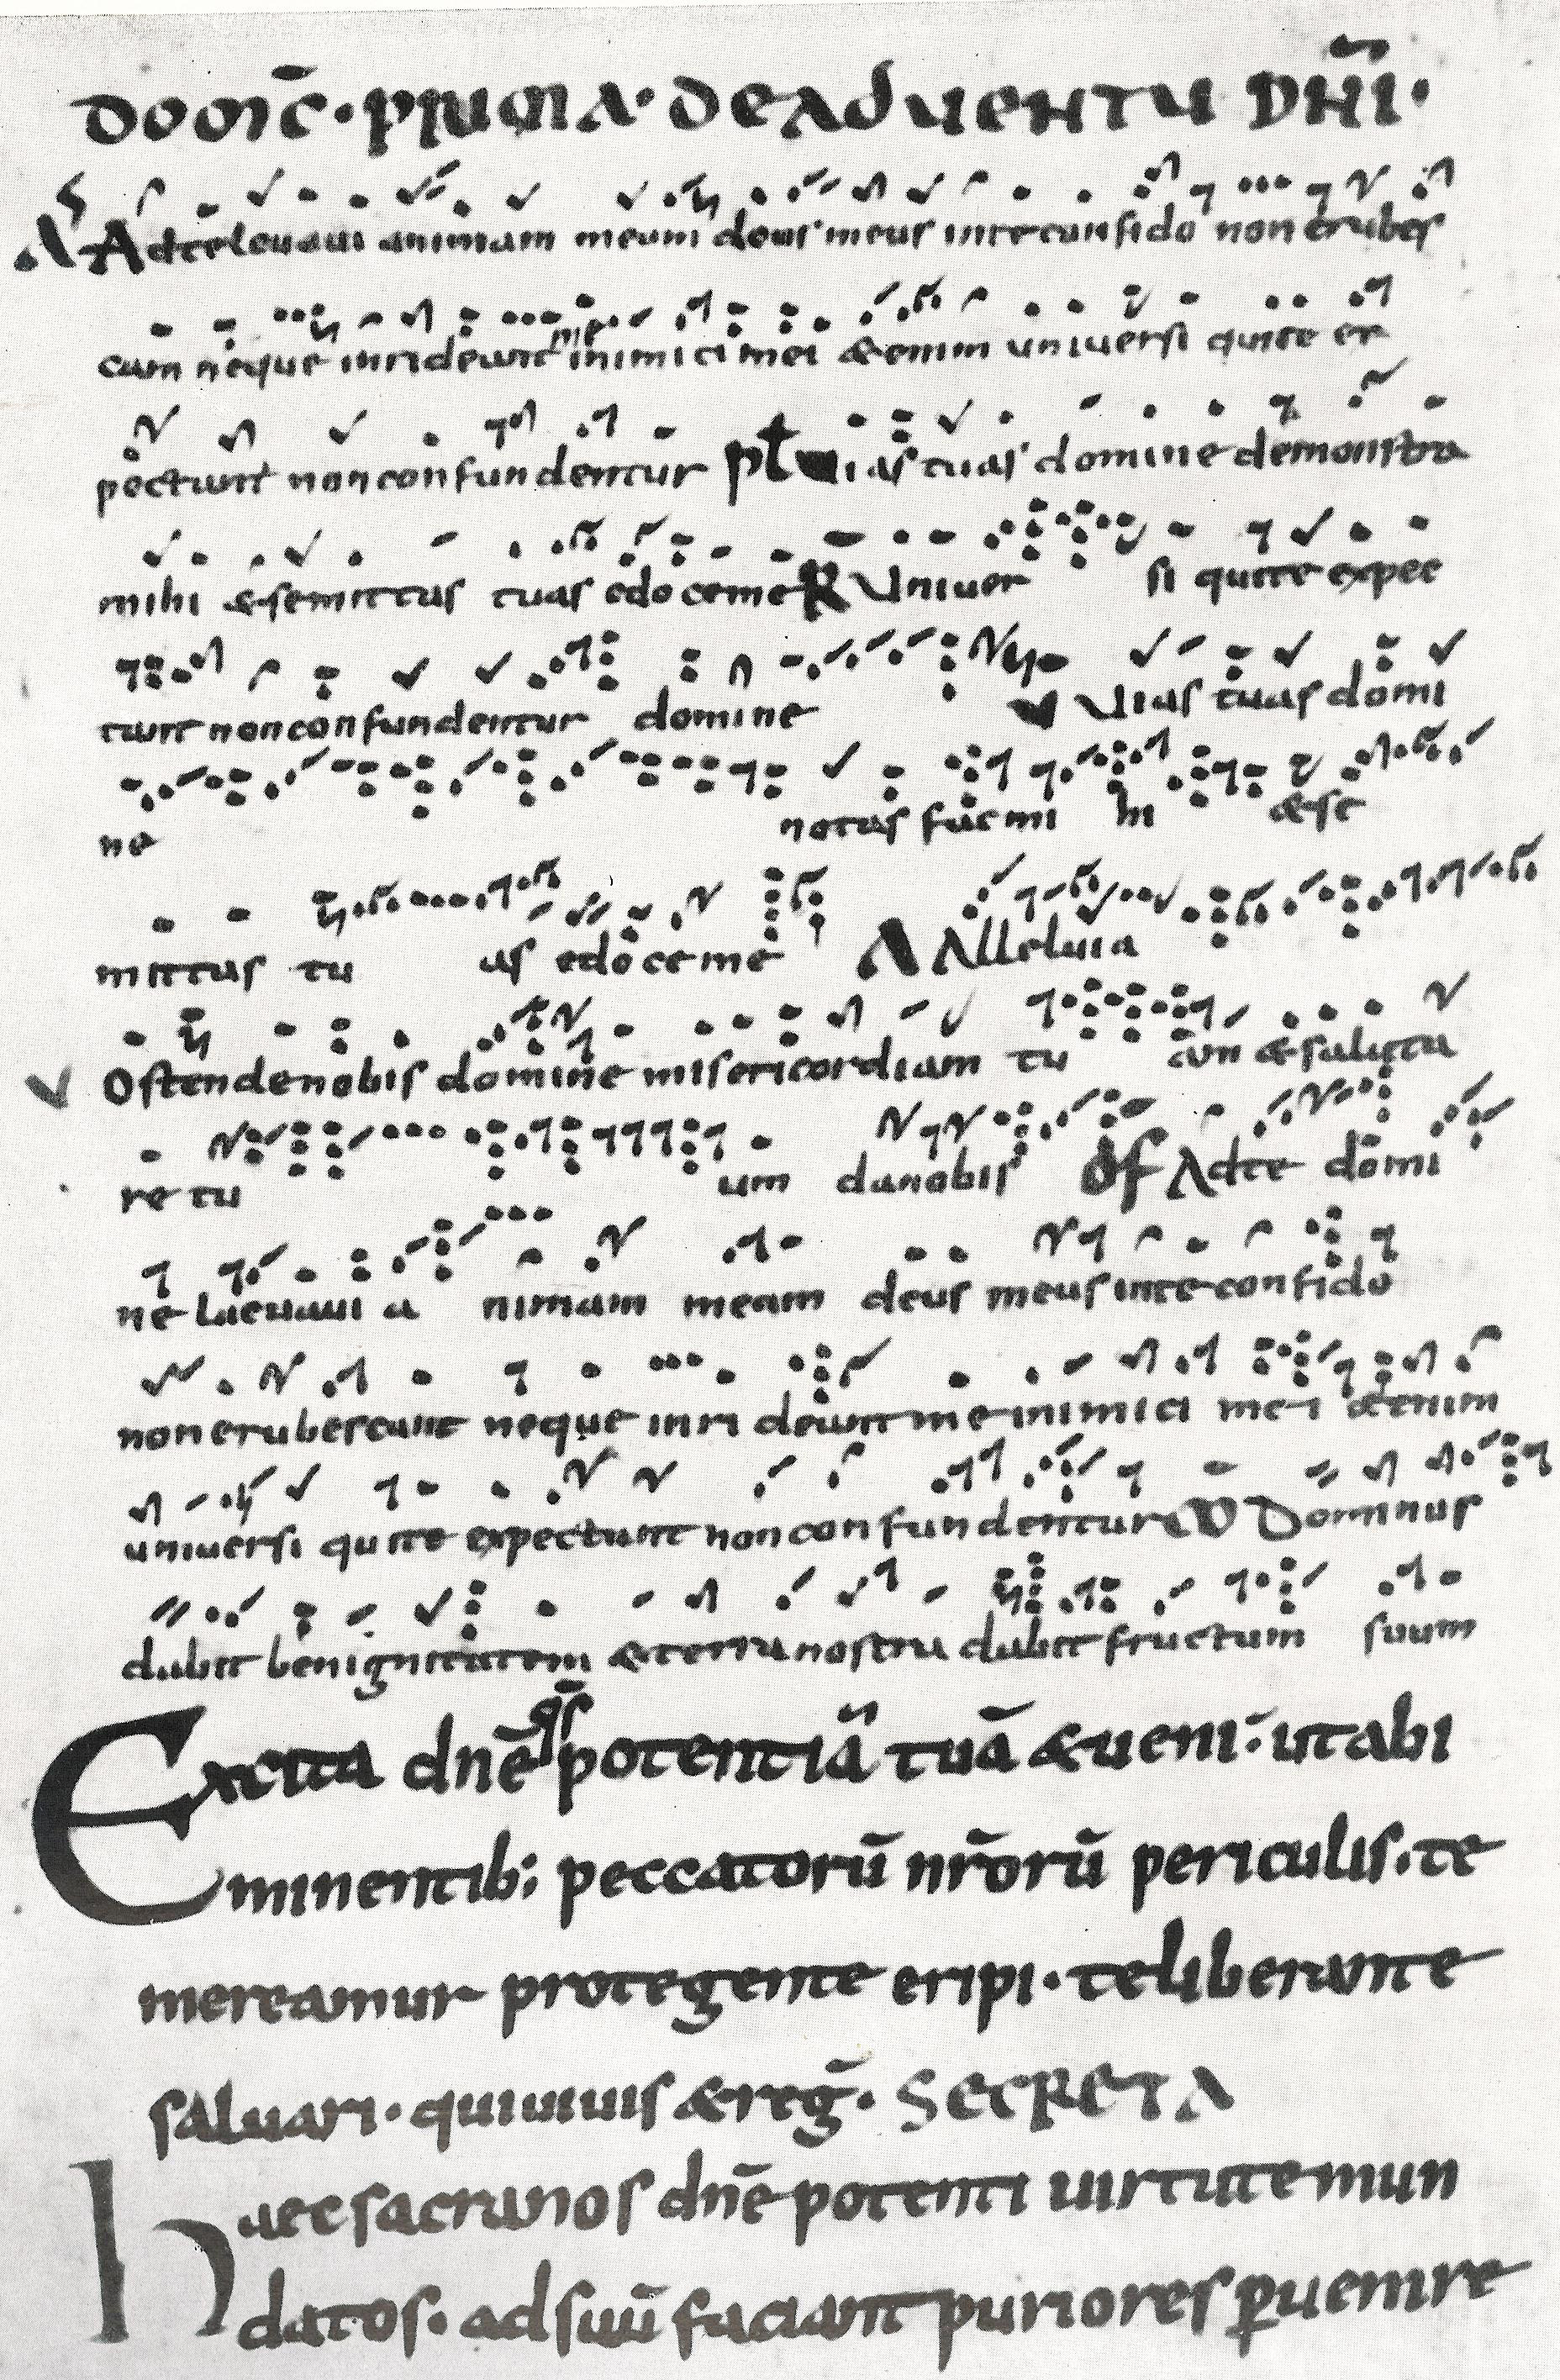 DOMIC̄ · PRIMA · DE ADUENTU DN̄I ·
A Ad te leuaui animam meam deus meus in te confido non erubes
cam neque inrideant me inimici mei & enim uniuersi qui te ex
pectant non confundentur ps̄ Uias tuas domine demonstra
mihi & semittas tuas edoce me R Uniuer si qui te expec
tant non confundentur domine V Uias tuas domi
ne notas fac mi hi & se
mittas tu as edoce me A Alleluia
V Ostende nobis domine misericordiam tu am & saluta
re tu um da nobis OF Ad te domi
ne laeuaui a nimam meam deus meus in te confido
non erubescam neque inri deant me inimici mei etenim
uniuersi qui te expectant non confundentur CO Dominus
dabit benignitatem & terra nostra dabit fructum suum
Excita dnē qs̄ potentiā tuā & ueni · ut abi
minentib; peccatorū nr̄orū periculis · te
mereamur protegente eripi · te liberante
saluari · qui uiuis & reḡ · SECRETA
Haec sacra nos dnē potenti uirtute mun
datos · ad suū faciant puriores puenire